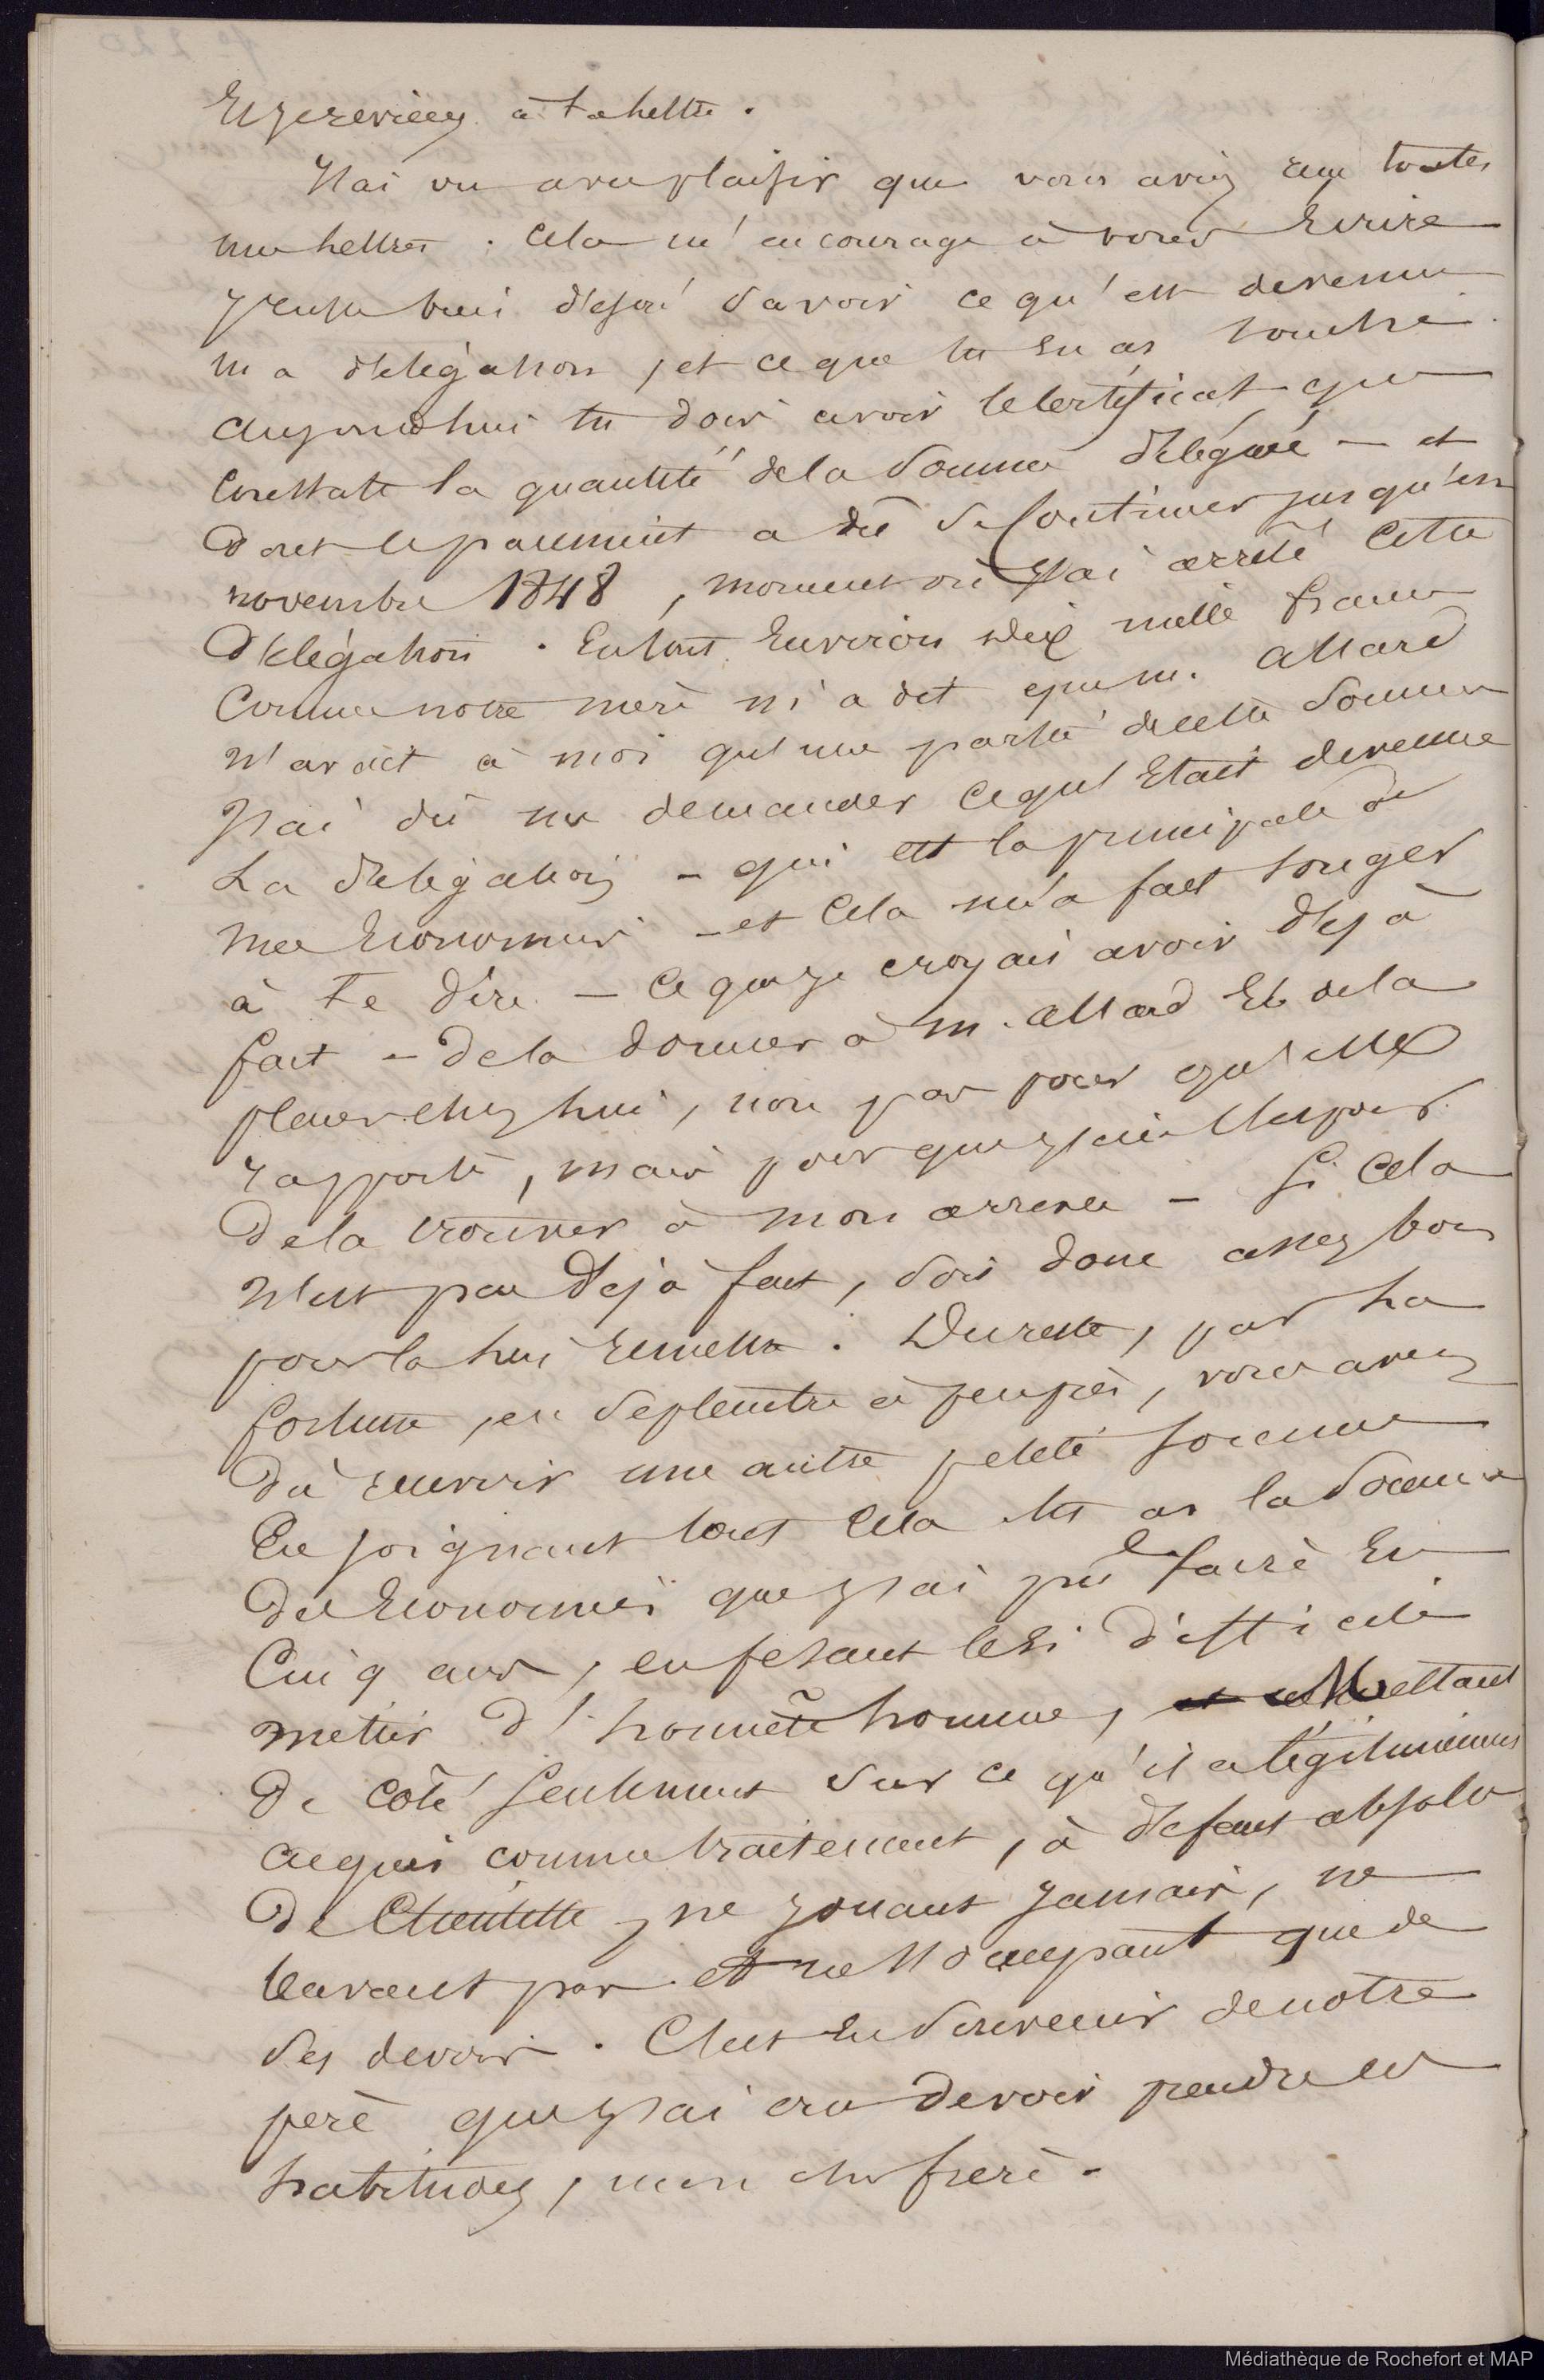 à ta lettre.
J'ai vu avec plaisir que vous aviez reçu toutes
mes lettres. Cela m'encourage à vous Ecrire
J'eusse bien désiré savoir ce qu'est devenue
ma délégation, et ce que tu En as touché.
aujourdhui tu dois avoir le certificat qui
Constate la quantité de la Somme déléguée — et
Dont le paiement a dû se Continuer jusqu'en
novembre 1848, moment où J'ai arrêté Cette
Délégation. En tout Environ dix mille francs
Comme notre mère m'a dit que m. allard
N'avait à moi qu'une partie de cette Somme
J'ai dû me demander ce qu'Etait devenue
La délégation — qui est la principale de
mes Economies — et Cela m'a fait songer
à Te dire — Ce que je croyais avoir déjà
fait — de la donner à m. allard Et de la
placer chez lui, non pas pour qu'elle
rapporte, mais pour que J'aie l'espoir
De la trouver à mon arrivée — Si Cela
N'est pas Déjà fait, Sois donc assez bon
pour la lui remettre. Du reste, par La
fortune, en Septembre à peu près, vous avez
Dû recevoir une autre petite somme
En joignant tout Cela tu as la Somme
Des Economies que J'ai pu faire En
Cinq ans, en fesant le si difficile
métier d'honnête homme, et Mettant
De Côté Seulement Sur ce qu'il a légitimement
acquis comme traitement, à défaut absolu
De Clientelle, ne jouant Jamais, ne
buvant pas et ne S'occupant que de
Ses devoirs. C'est En Souvenir de notre
père que J'ai cru Devoir prendre ces
habitudes, mon cher frère.

Médiathèque de Rochefort et MAP